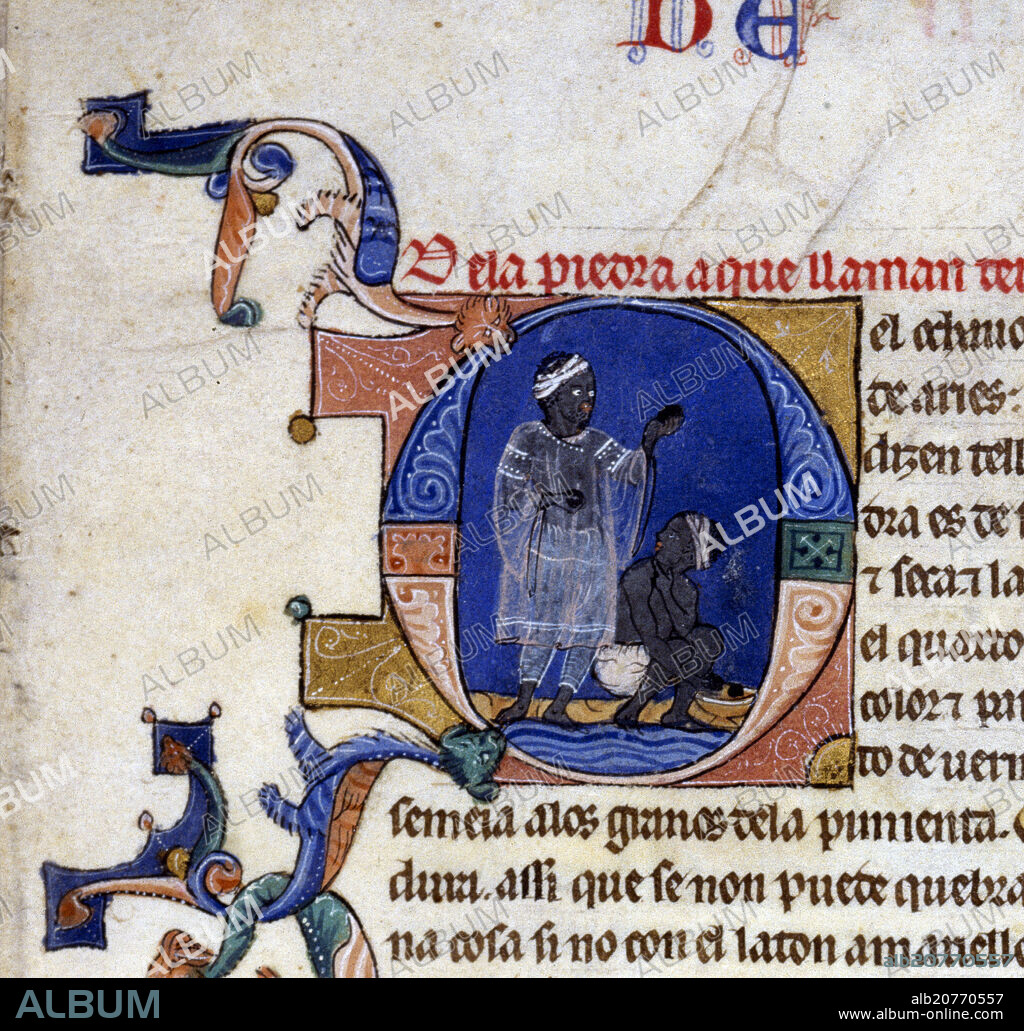 DE
Dela piedra aque llaman tel
el ochauo
de aries:
dizen tell
dra es de
⁊ seca ⁊ la
el quarto
color ⁊ par
to de uerm
semeia alos granos dela pimienta.
dura. assi que se non puede quebra
na cosa si no con el laton amariello
ALBUM
ab20770557
ALBUM
alb20770557
www.album-online.com